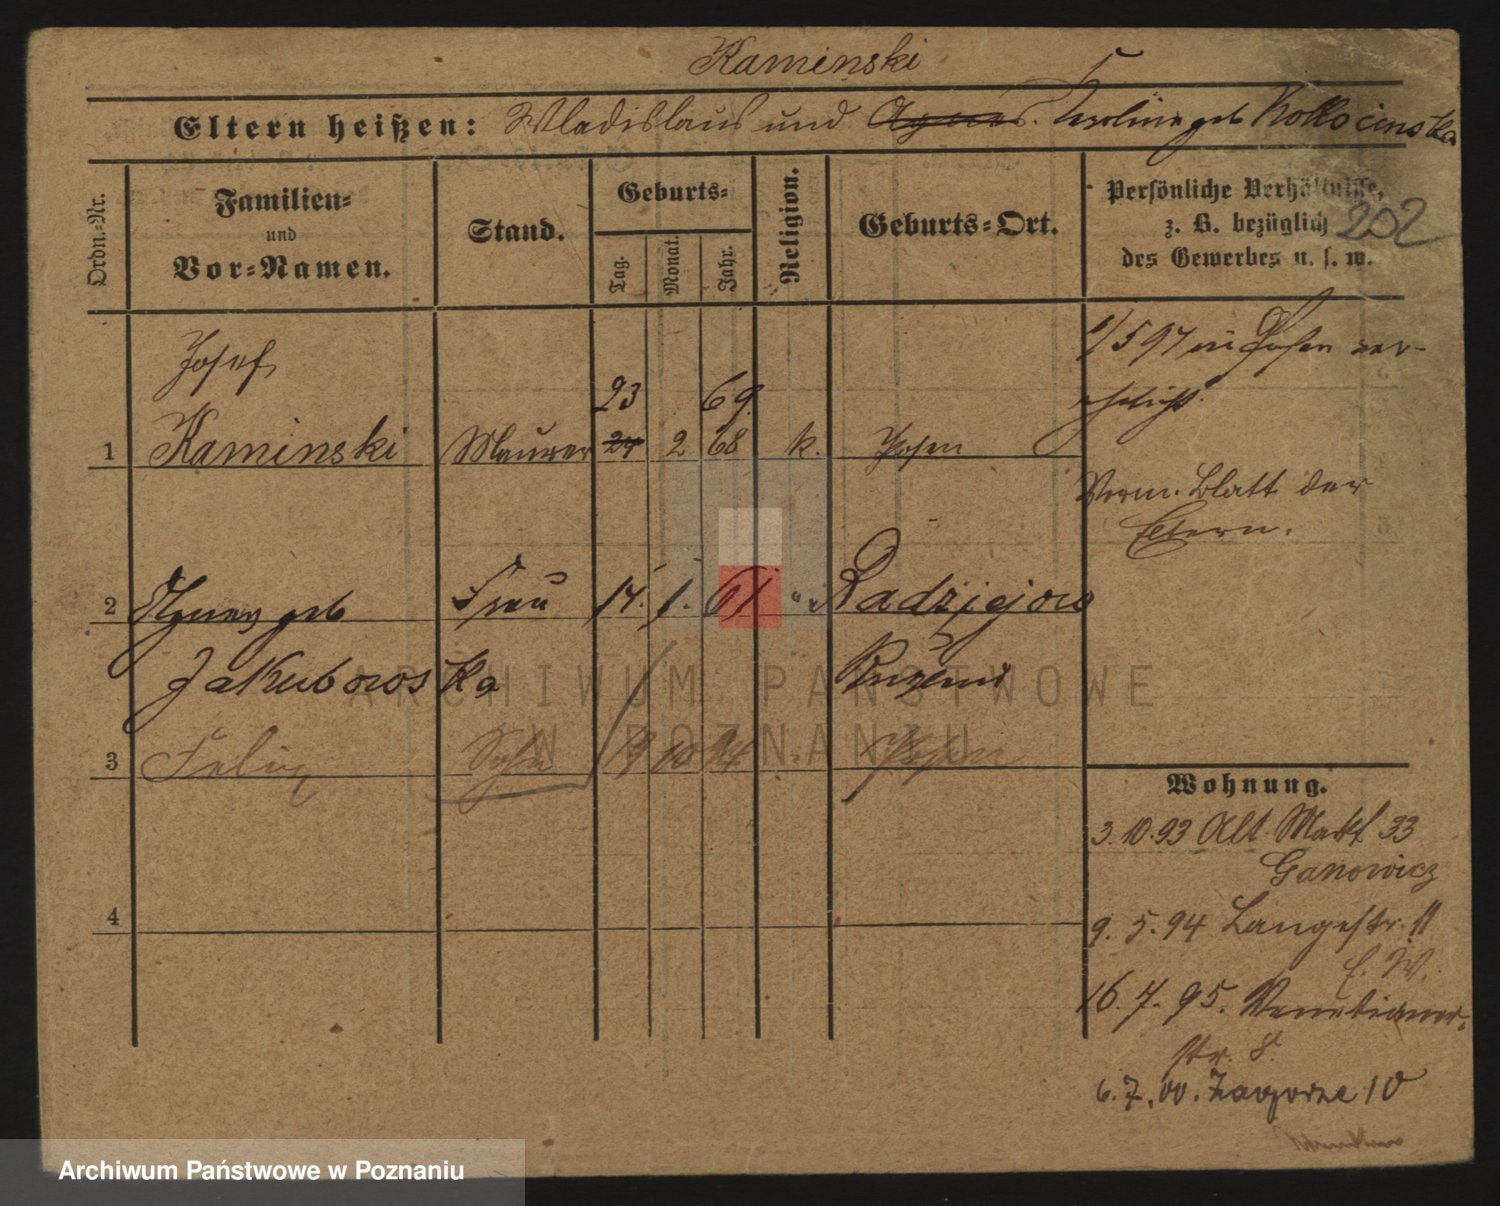 Kaminski
Eltern heißen: Wladislaus und Agnes. Karoline geb Kollocinska
Ordn.-Nr.
Familien-
und
Vor-Namen.
Stand.
Geburts-
Tag.
Monat.
Jahr.
Religion.
Geburts-Ort.
Persönliche Verhältnisse,
z. B. bezüglich
des Gewerbes u. s. w.
202
Josef
23 69.
1 Kaminski Maurer 24 2 68 k. Posen
1/5 97 in Posen ver-
ehelicht.
Verm. Blatt der
Eltern.
2 Agnes geb Frau 14. 1. 61 " Radziejewo
Jakubowska
3 Felix Sohn 10 94 Posen
4
Wohnung.
3.10.93 Alt. Markt 33
Ganowicz
9. 5. 94 Langestr. 11
E. W.
16. 7. 95. Venetianer-
str. 8.
6. 7. 00. Zagorze 10
ARCHIWUM PAŃSTWOWE
W POZNANIU
Archiwum Państwowe w Poznaniu